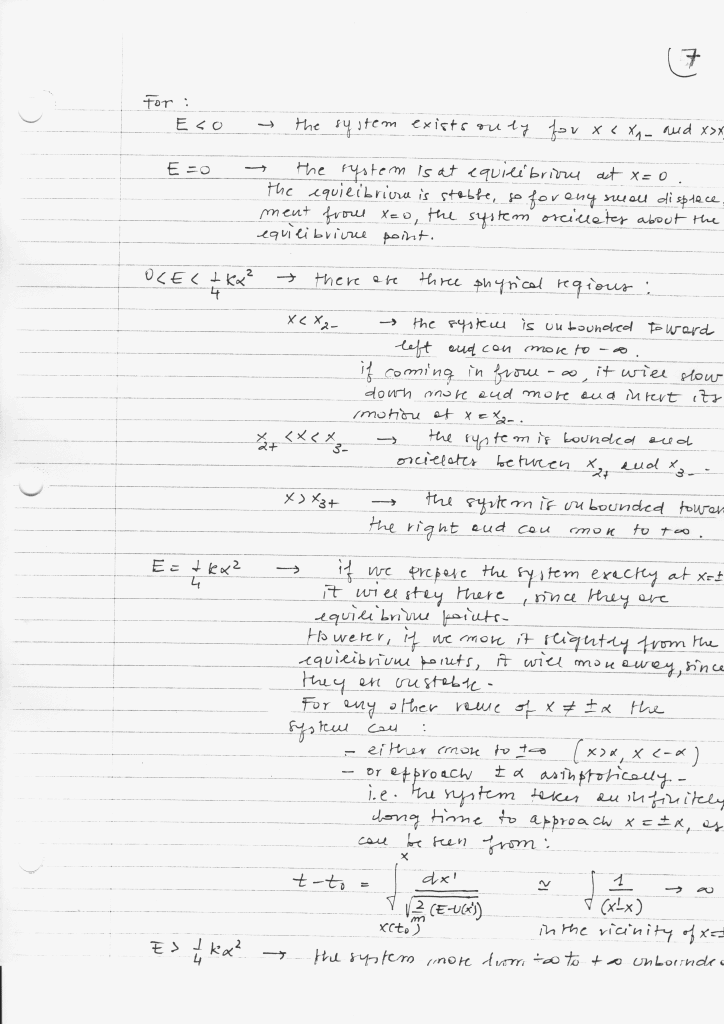 7
For :
E < 0 → the system exists only for x < x₁₋ and x > x
E = 0 → the system is at equilibrium at x = 0 .
the equilibrium is stable, so for any small displace
ment from x=0, the system oscillates about the
equilibrium point.
0 < E < 1/4 kα² → there are three physical regions :
x < x₂₋ → the system is unbounded toward
left and can move to -∞ .
if coming in from -∞, it will slow
down more and more and invert its
motion at x = x₂₋ .
x₂₊ < x < x₃₋ → the system is bounded and
oscillates between x₂₊ and x₃₋ .
x > x₃₊ → the system is unbounded towar
the right and can move to +∞ .
E = 1/4 kα² → if we prepare the system exactly at x=±
it will stay there , since they are
equilibrium points.
However, if we move it slightly from the
equilibrium points, it will move away, since
they are unstable .
For any other value of x ≠ ±α the
system can :
– either move to ±∞ (x>α, x <-α)
– or approach ±α asimptotically –
i.e. the system takes an infinitely
long time to approach x = ±α, as
can be seen from :
t-t₀ = ∫_{x(t₀)}^{x} dx' / √(2/m (E-U(x'))) ≃ ∫ 1/(x'-x) → ∞
in the vicinity of x=±
E > 1/4 kα² → the system move from -∞ to +∞ unbounde